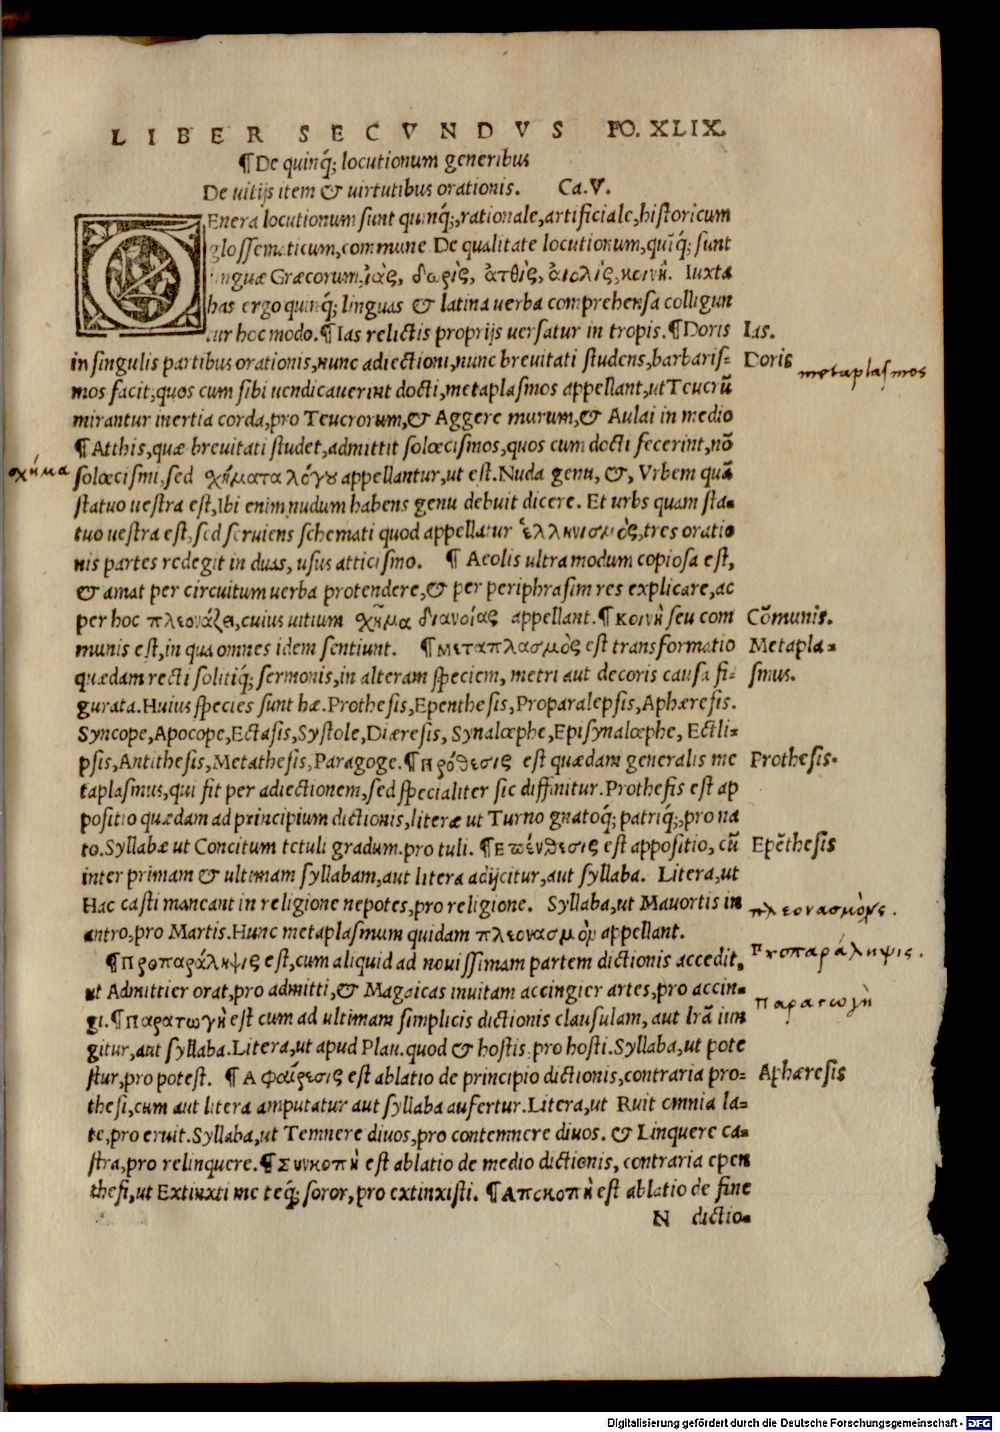 LIBER SECVNDVS FO. XLIX.
¶De quinq; locutionum generibus
De uitijs item & uirtutibus orationis. Ca.V.
Enera locutionum sunt quinq;,rationale,artificiale,historicum
glossematicum,commune.De qualitate locutionum,quīq; sunt
linguæ Græcorum,ἰὰς, δωρὶς, ἀτθὶς, ἀιολὶς,κοινὴ. Iuxta
has ergo quinq; linguas & latina uerba comprehensa colligun
tur hoc modo.¶Ias relictis proprijs uersatur in tropis.¶Doris
Ias.
in singulis partibus orationis,nunc adiectioni,nunc breuitati studens,barbaris-
Doris
metaplasmos
mos facit,quos cum sibi uendicauerint docti,metaplasmos appellant,ut Teucrū
mirantur inertia corda,pro Teucrorum,& Aggere murum,& Aulai in medio
¶Atthis,quæ breuitati studet,admittit solœcismos,quos cum docti fecerint,nō
σχῆμα
solœcismi,sed σχήματα λόγου appellantur,ut est.Nuda genu,&,Vrbem quā
statuo uestra est,Ibi enim nudum habens genu debuit dicere. Et urbs quam sta-
tuo uestra est,sed seruiens schemati quod appellatur ἑλληνισμὸς,tres oratio
nis partes redegit in duas, usus atticismo. ¶ Aeolis ultra modum copiosa est,
& amat per circuitum uerba protendere,& per periphrasim res explicare,ac
per hoc πλεονάζει,cuius uitium σχῆμα διανοίας appellant.¶κοινὴ seu com
Cōmunis.
munis est,in qua omnes idem sentiunt. ¶μεταπλασμὸς est transformatio
Metapla-
quædam recti solitiq; sermonis,in alteram speciem, metri aut decoris causa fi-
smus.
gurata.Huius species sunt hæ.Prothesis,Epenthesis,Proparalepsis,Aphæresis.
Syncope,Apocope,Ectasis,Systole,Diæresis, Synalœphe,Episynalœphe, Ectli-
psis,Antithesis,Metathesis,Paragoge.¶Πρόθεσις est quædam generalis me
Prothesis.
taplasmus,qui fit per adiectionem,sed specialiter sic diffinitur.Prothesis est ap
positio quædam ad principium dictionis,literæ ut Turno gnatoq; patriq;,pro na
to.Syllabæ ut Concitum tetuli gradum.pro tuli. ¶Επένθεσις est appositio, cū
Epēthesis
inter primam & ultimam syllabam,aut litera adijcitur,aut syllaba. Litera,ut
Hac casti maneant in religione nepotes,pro religione. Syllaba,ut Mauortis in
πλεονασμὸς.
antro,pro Martis.Hunc metaplasmum quidam πλεονασμὸν appellant.
¶Προπαράληψις est,cum aliquid ad nouissimam partem dictionis accedit,
Προπαράληψις.
ut Admittier orat,pro admitti,& Magaicas inuitam accingier artes,pro accin-
παραγωγὴ
gi.¶Παραγωγὴ est cum ad ultimam simplicis dictionis clausulam, aut lrā iun
gitur,aut syllaba.Litera,ut apud Plau.quod & hostis pro hosti.Syllaba,ut pote
stur,pro potest. ¶Αφαίρεσις est ablatio de principio dictionis,contraria pro-
Aphæresis
thesi,cum aut litera amputatur aut syllaba aufertur.Litera,ut Ruit omnia la-
te,pro eruit.Syllaba,ut Temnere diuos,pro contemnere diuos. & Linquere ca-
stra,pro relinquere.¶Συνκοπὴ est ablatio de medio dictionis, contraria epen
thesi,ut Extinxti me teq; soror,pro extinxisti. ¶Αποκοπὴ est ablatio de fine
N dictio-
Digitalisierung gefördert durch die Deutsche Forschungsgemeinschaft - DFG